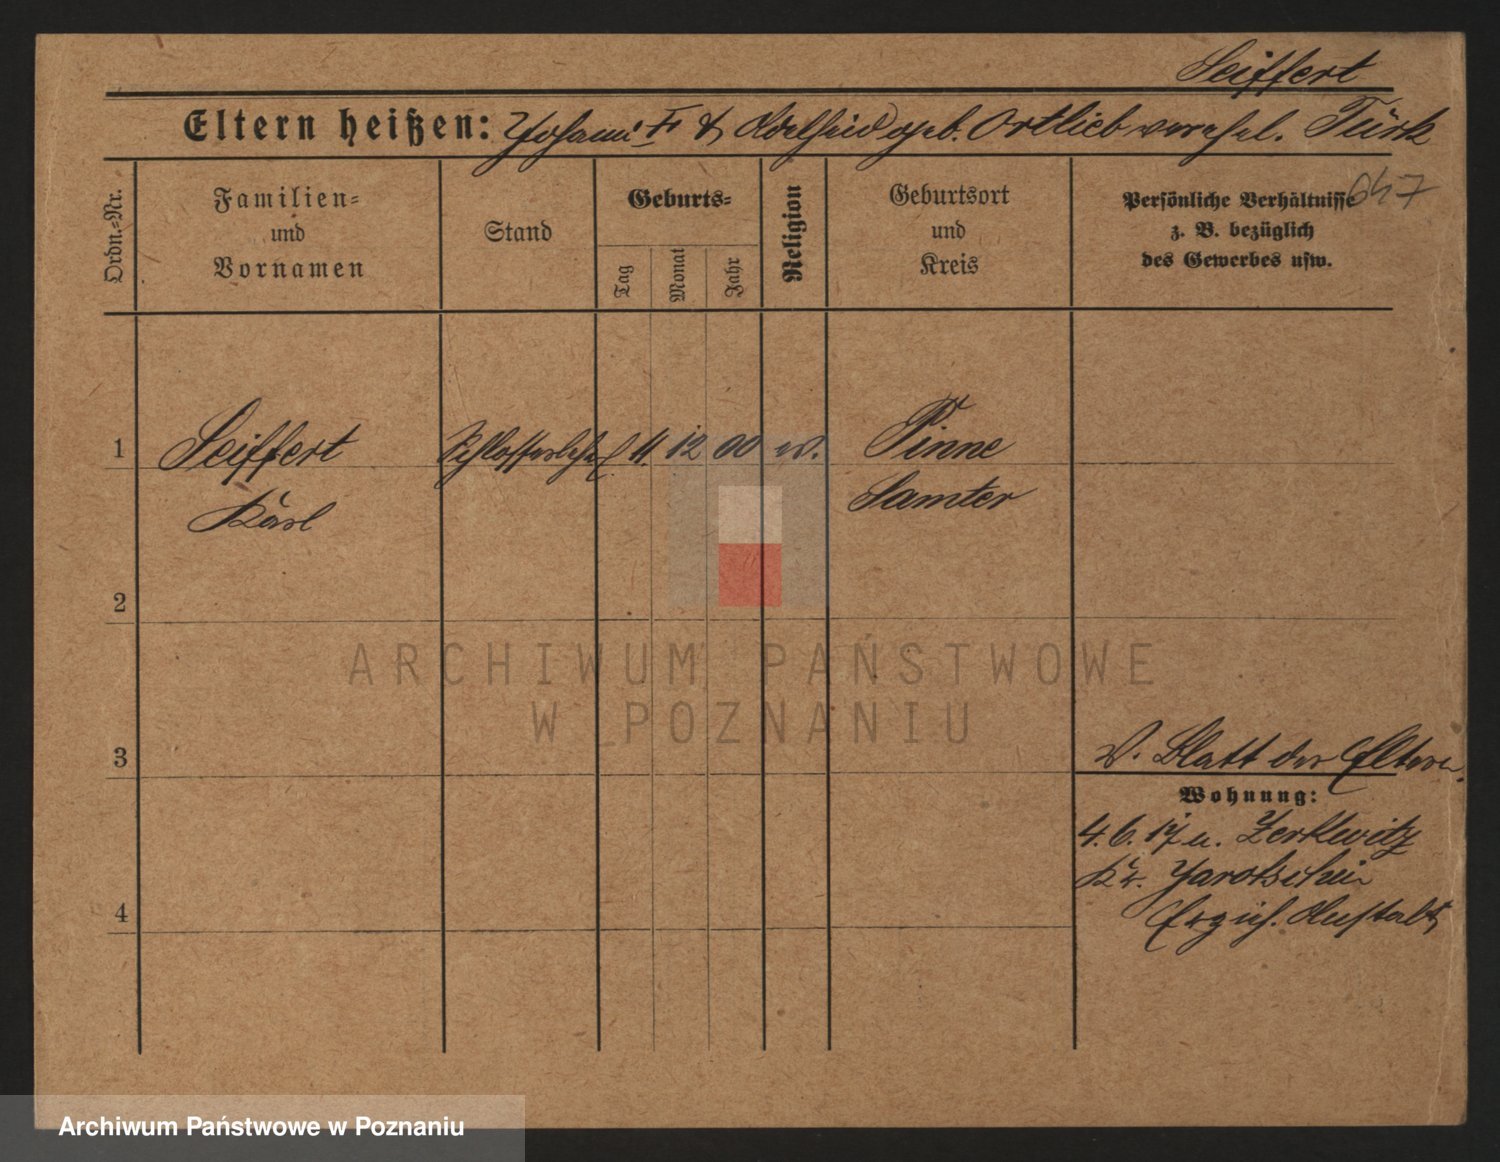 Seiffert
Eltern heißen: Johann † & Adelheid geb. Ortlieb verehel. Türk
647
Ordn.-Nr.
Familien-
und
Vornamen
Stand
Geburts-
Tag
Monat
Jahr
Religion
Geburtsort
und
Kreis
Persönliche Verhältnisse
z. B. bezüglich
des Gewerbes usw.
1
Seiffert
Karl
Schlosserlehrl. 11. 12 00 ev.
Pinne
Samter
2
3
4
V. Blatt der Eltern.
Wohnung:
4. 6. 17 n. Zerkwitz
Kr. Jarotschin
Erzieh. Anstalt
ARCHIWUM PAŃSTWOWE
W POZNANIU
Archiwum Państwowe w Poznaniu